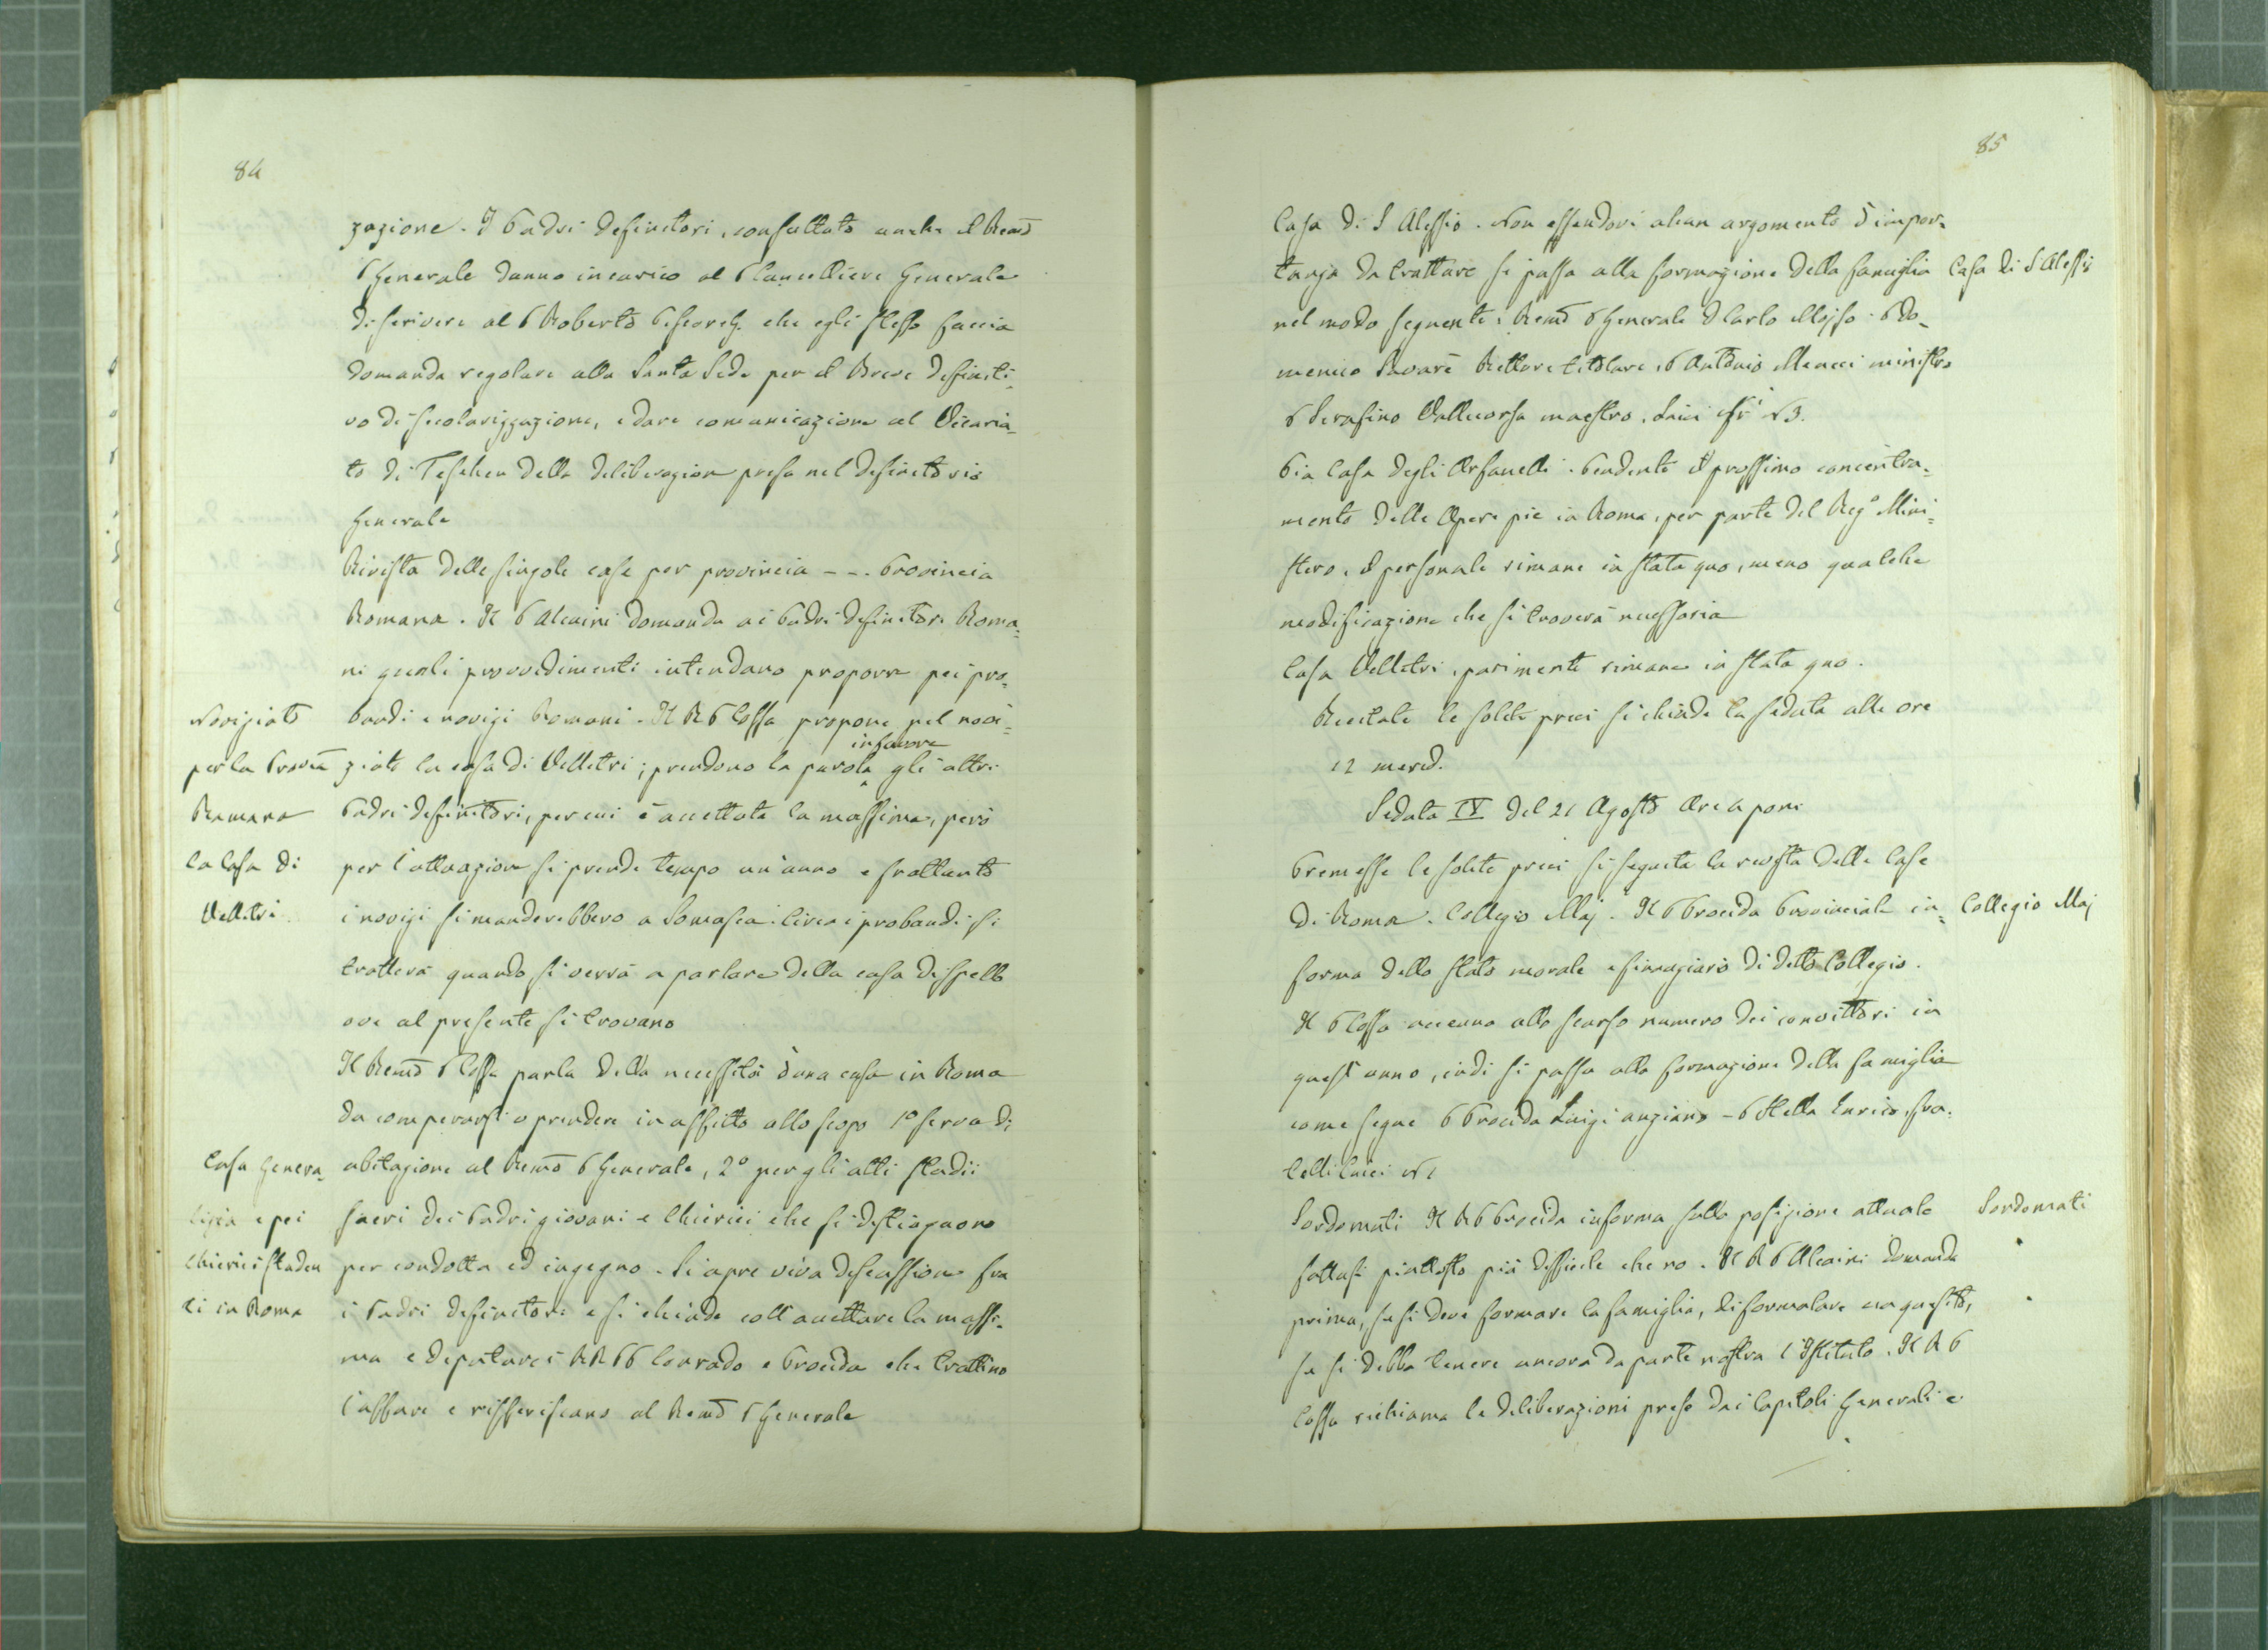 84
zazione. I Padri definitori, consultato anche il Remo
P Generale danno incarico al P Cancelliere Generale
di scrivere al P Roberto che egli stesso faccia
domanda regolare alla Santa Sede per il Breve definiti-
vo di secolarizzazione, e dare comunicazione al Vicaria-
to di Teschen della deliberazion presa nel definitorio
Generale
Rivista delle singole case per provincia - - . Provincia
Romana. Il P Alcaini domanda ai Padri definitori Roma-
ni quali provvedimenti intendano proporre pei pro-
Noviziato
bandi e novizi Romani. Il R P Cossa propone pel novi-
in favore
per la Provin
ziato la casa di Velletri; prendono la parola gli altri
Romana
Padri definitori, per cui è accettata la massima, però
la Casa di
per l'attuazion si prende tempo un'anno e frattanto
Velletri
i novizi si manderebbero a Somasca. Circa i probandi si
tratterà quando si verrà a parlare della casa di Spello
ove al presente si trovano
Il Remo P Cossa parla della necessità d'una casa in Roma
da comperarsi o prendere in affitto allo scopo 1° serva di
Casa Genera-
abitazione al Remo P Generale, 2° per gli alti studii
lizia e pei
sacri dei Padri giovani e Chierici che si distinguono
Chierici studen
per condotta ed ingegno. Si apre viva discussione fra
ti in Roma
i Padri definitori e si chiude coll'accettare la massi-
ma e deputare i RR PP Corrado e Procida che trattino
l'affare e rifferiscano al Remo P Generale
85
Casa di S Alessio. Non essendovi alcun argomento d'impor-
tanza da trattare si passa alla formazione della famiglia
Casa di S Alessio
nel modo seguente: Remo P Generale D Carlo Mojso. P Do-
menico Savarè Rettore titolare, P Antonio Meucci ministro
P Serafino Vallecorsa maestro, Laici N 3.
Pia Casa degli Orfanelli. Pendente il prossimo concentra-
mento delle Opere pie in Roma, per parte del Reg° Mini-
stero, il personale rimane in statu quo, meno qualche
modificazione che si troverà necessaria
Casa Velletri, parimenti rimane in statu quo.
Recitate le solite preci si chiude la seduta alle ore
12 merid.
Seduta IV del 21 Agosto Ore 4 pom
Premesse le solite preci si seguita la rivista delle Case
di Roma. Collegio Maj. Il P Procida Provinciale in-
Collegio Maj
forma dello stato morale e finanziario di detto Collegio.
Il P Cossa accenna allo scarso numero dei convittori in
quest'anno, indi si passa alla formazione della famiglia
come segue P Procida Luigi anziano - P Stella Enrico, fra-
telli laici N 1
Sordomuti Il R P Procida informa sulla posizione attuale
Sordomuti
fattasi piuttosto più difficile che no. Il R P Alcaini domanda
prima, se si deve formare la famiglia, di formulare un quesito,
se si debba tenere ancora da parte nostra l'Istituto. Il R P
Cossa richiama le deliberazioni prese dai Capitoli Generali e